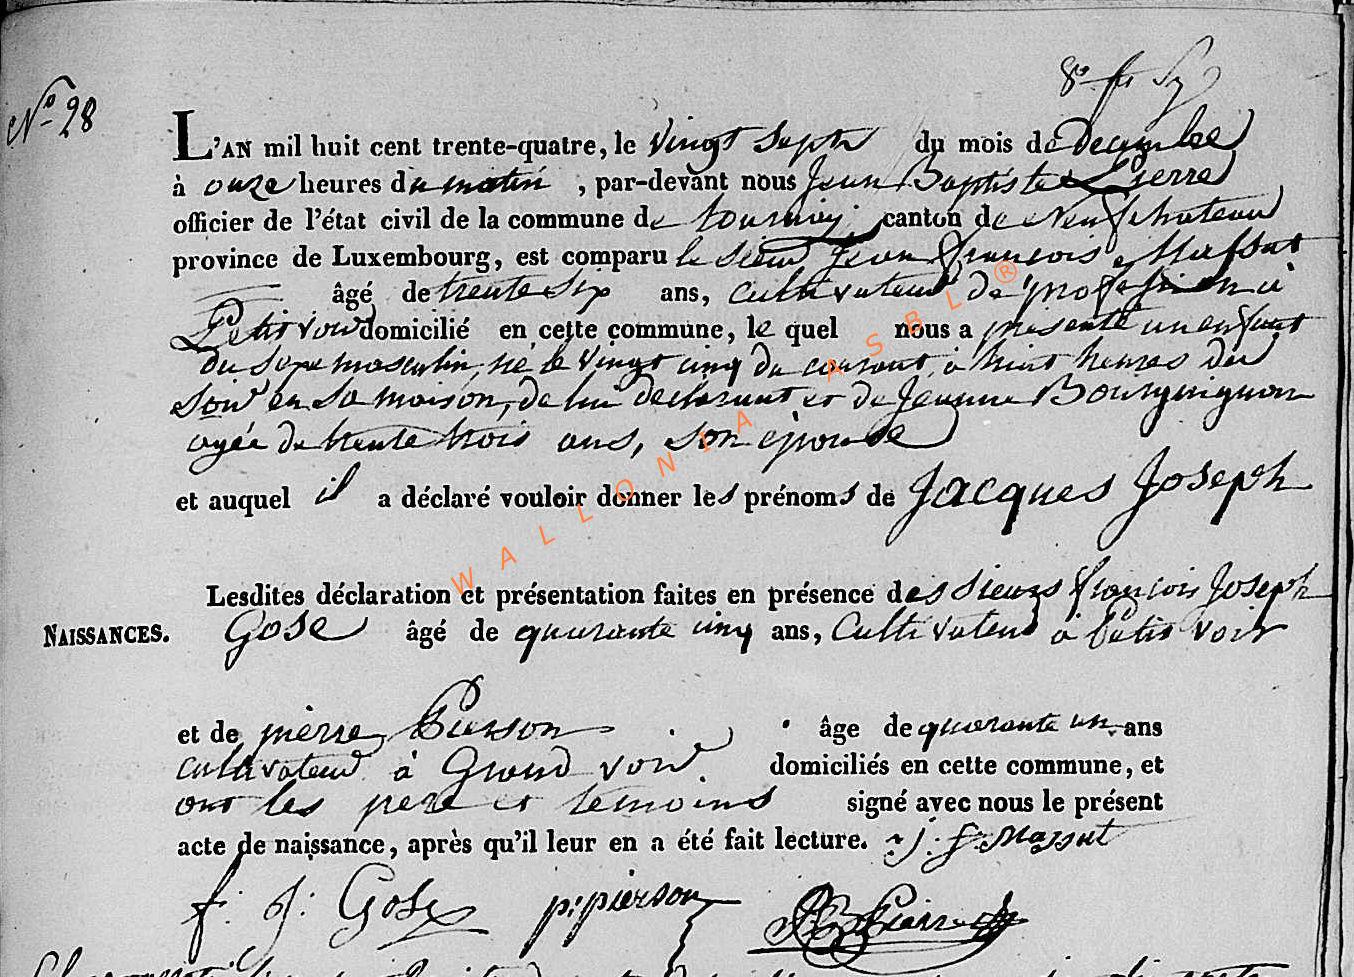 N° 28
L'AN mil huit cent trente-quatre, le vingt sept du mois de Decembre
à onze heures du matin , par-devant nous Jean Baptiste Pierre
officier de l'état civil de la commune de tournay, canton de Neufchateau
province de Luxembourg, est comparu le sieur Jean françois Massut
âgé de trente six ans, cultivateur de profession à
Petitvoir domicilié en cette commune, le quel nous a présenté un enfant
du sexe masculin, né le vingt cinq du courant, à huit heures du
soir en sa maison, de lui déclarant et de Jeanne Bourguignon
agée de trente trois ans, son épouse
et auquel il a déclaré vouloir donner les prénoms de Jacques Joseph
Lesdites déclaration et présentation faites en présence des sieurs françois Joseph
NAISSANCES. Gose âgé de quarante cinq ans, Cultivateur à Petit voir
et de pierre Pierson âge de quarante un ans
cultivateur à Grand voir. domiciliés en cette commune, et
ont les pere et témoins signé avec nous le présent
acte de naissance, après qu'il leur en a été fait lecture. J. f. Massut
f. J. Gose p. pierson JB Pierre
WALLONIA ASBL ®